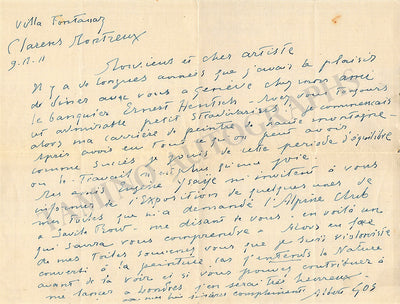 Villa Fontanaz
Clarens Montreux
9.12.11
Monsieur et cher artiste
Il y a de longues années que j'avais le plaisir
de diner avec vous à Genève chez mon ami
le banquier Ernest Hentsch. Avez vous toujours
cet admirable petit Stradivarius? Je commençais
alors ma carrière de peintre de haute montagne -
après avoir eu tout ce qu'on peut avoir
comme succès je jouis de cette période d'équilibre
où le travail n'est plus qu'une joie.
Mes amis Eugène Ysaye m'invitent à vous
informer de l'Exposition de quelques unes de
mes toiles que m'a demandé l'Alpine Club
Savile Row. me disant de vous: en voilà un
qui saura vous comprendre. Alors en face
de mes toiles souvenez vous que je suis violoniste
converti à la peinture car j'entends la Nature
avant de la voir et si vous pouvez contribuer à
me lancer à Londres j'en serai très heureux
mes bien sincères compliments Albert GOS
TAMINO AUTOGRAPHS